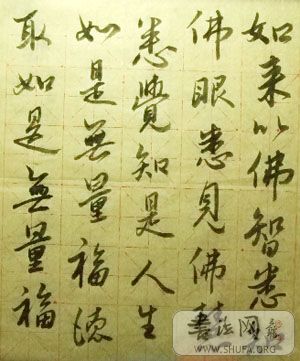 如来以佛智悉
佛眼悉見佛
悉覺知是人生
如是無量福德
取如是無量福
書法网
WWW.SHUFA.ORG